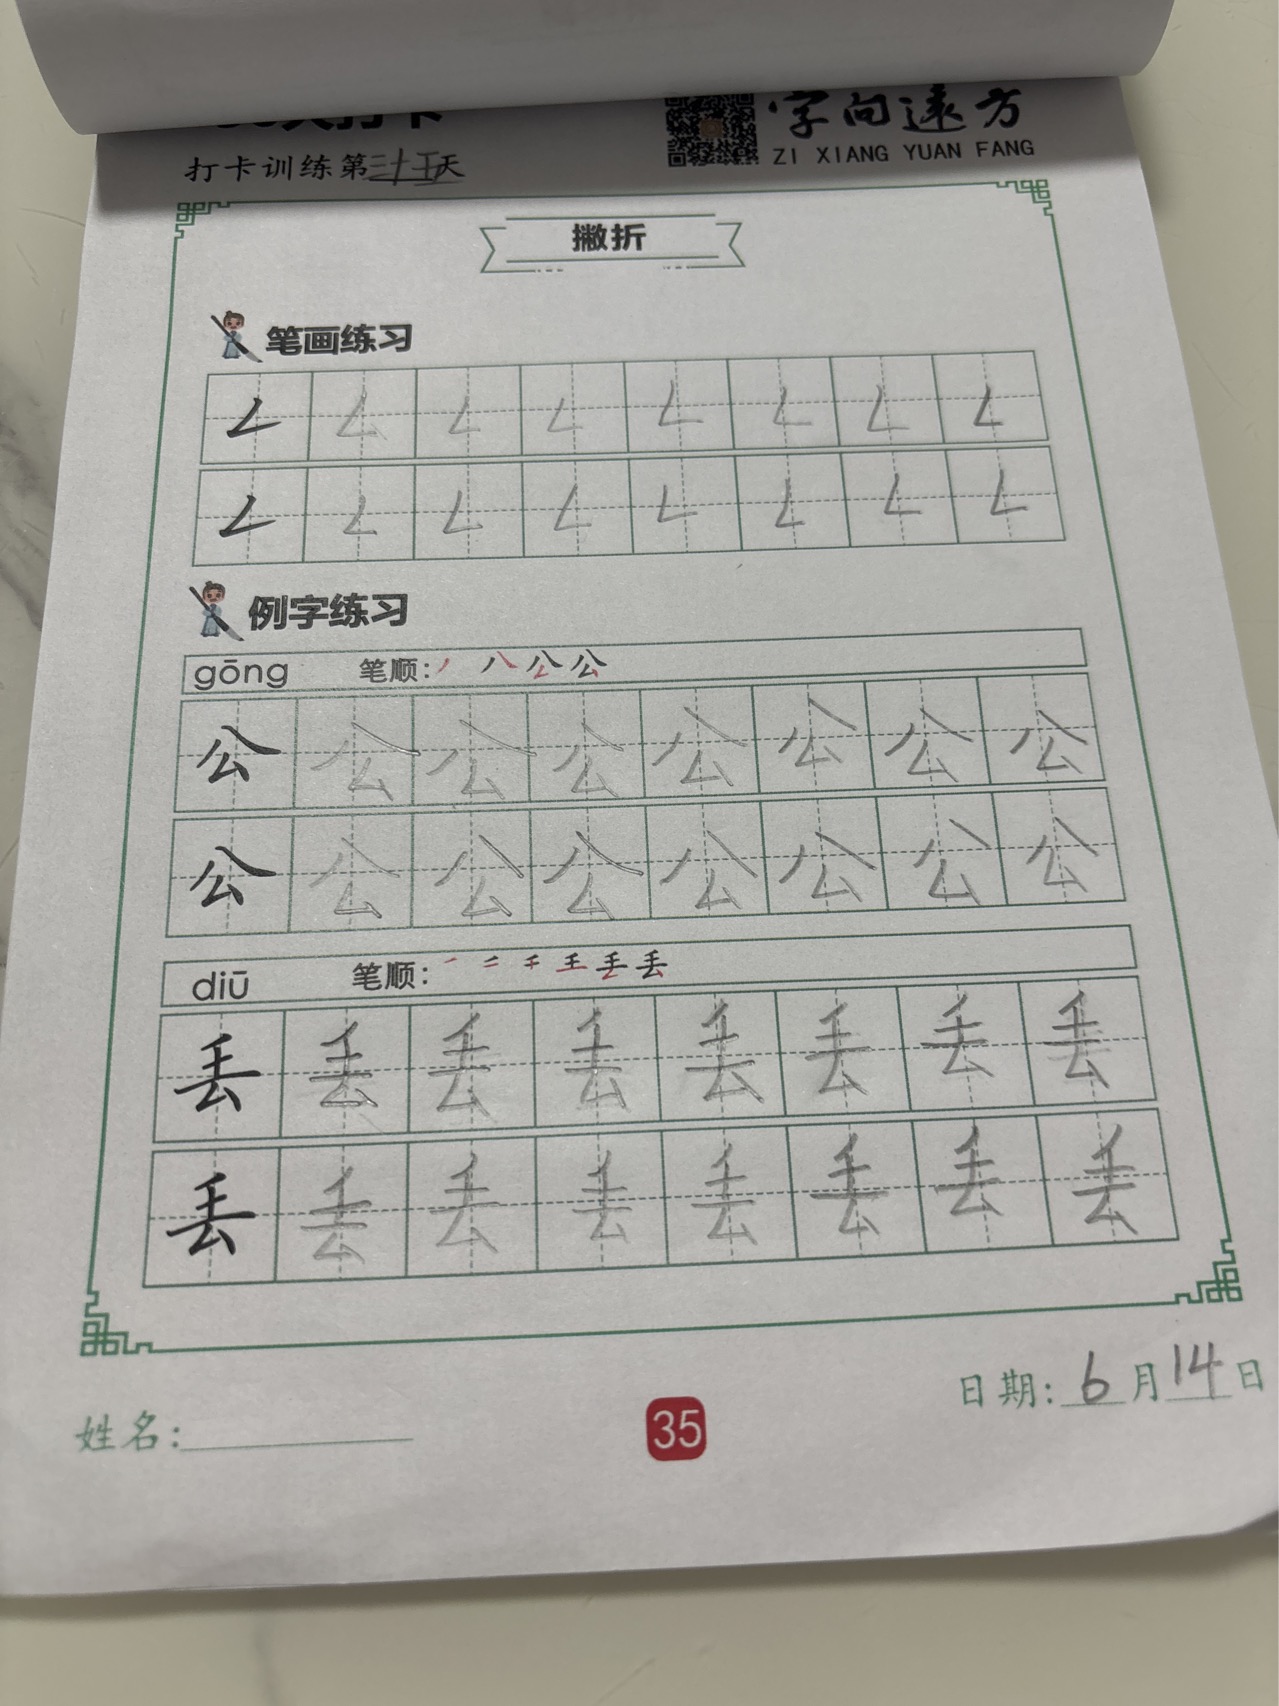 字向远方
ZI XIANG YUAN FANG
打卡训练第三十五天
撇折
笔画练习
𠃋 𠃋 𠃋 𠃋 𠃋 𠃋 𠃋 𠃋
𠃋 𠃋 𠃋 𠃋 𠃋 𠃋 𠃋 𠃋
例字练习
gōng 笔顺:
公 公 公 公 公 公 公 公
公 公 公 公 公 公 公 公
diū 笔顺:
丢 丢 丢 丢 丢 丢 丢 丢
丢 丢 丢 丢 丢 丢 丢 丢
日期:6月14日
姓名:
35